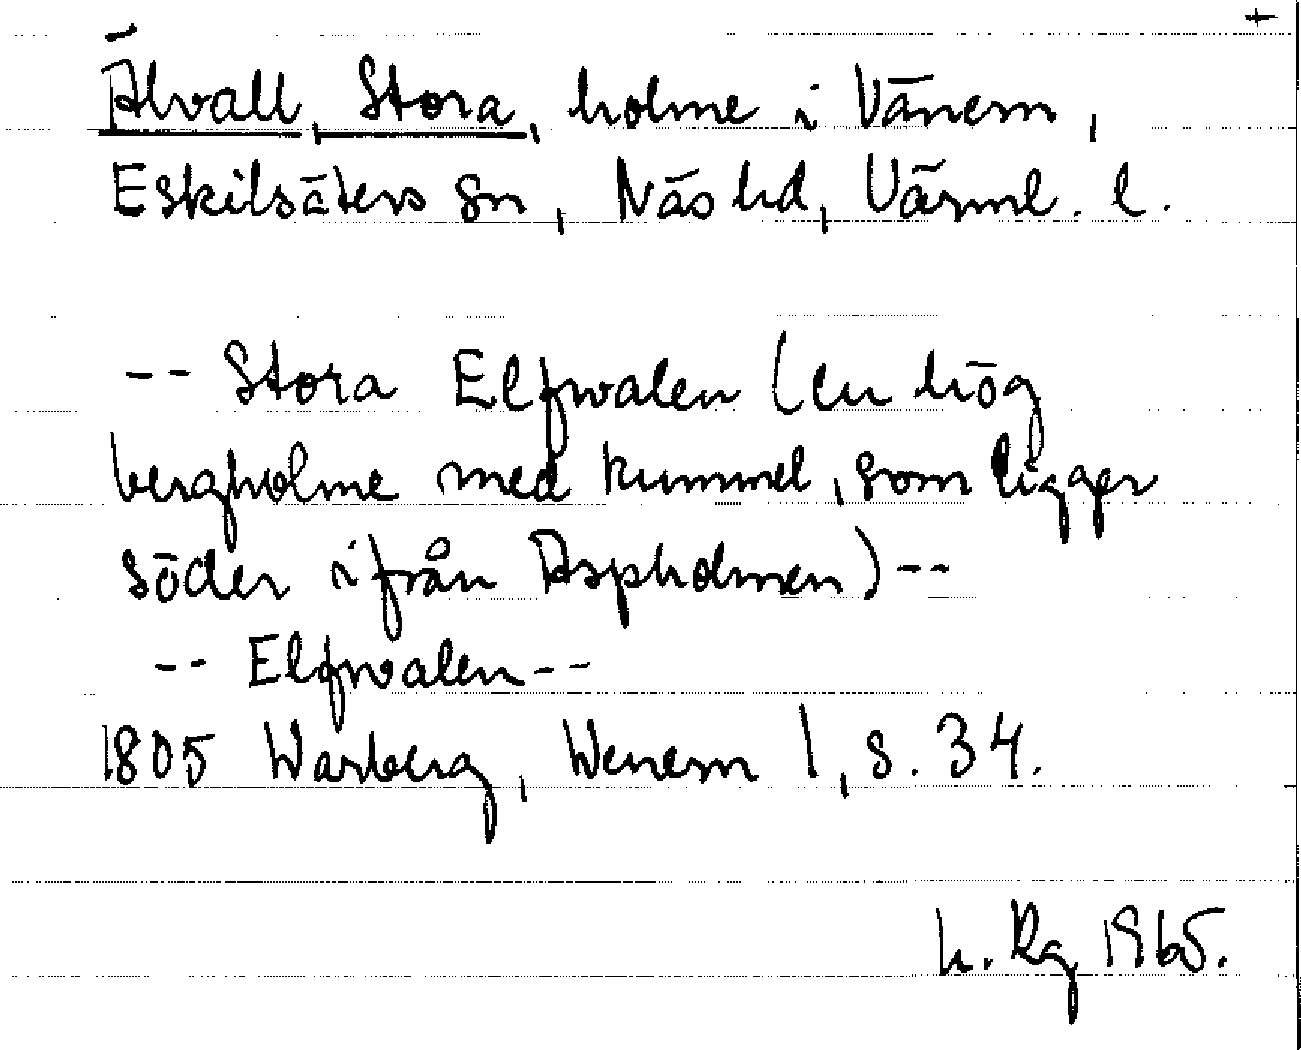 +
Älvall, Stora, holme i Vänern,
Eskilsäters sn, Näs hd, Värml. l.
-- Stora Elfwalen (en hög
bergholme med kummel, som ligger
söder ifrån Aspholmen) --
-- Elfwalen --
1805 Warberg, Wenern 1, s. 34.
h. Rg 1965.